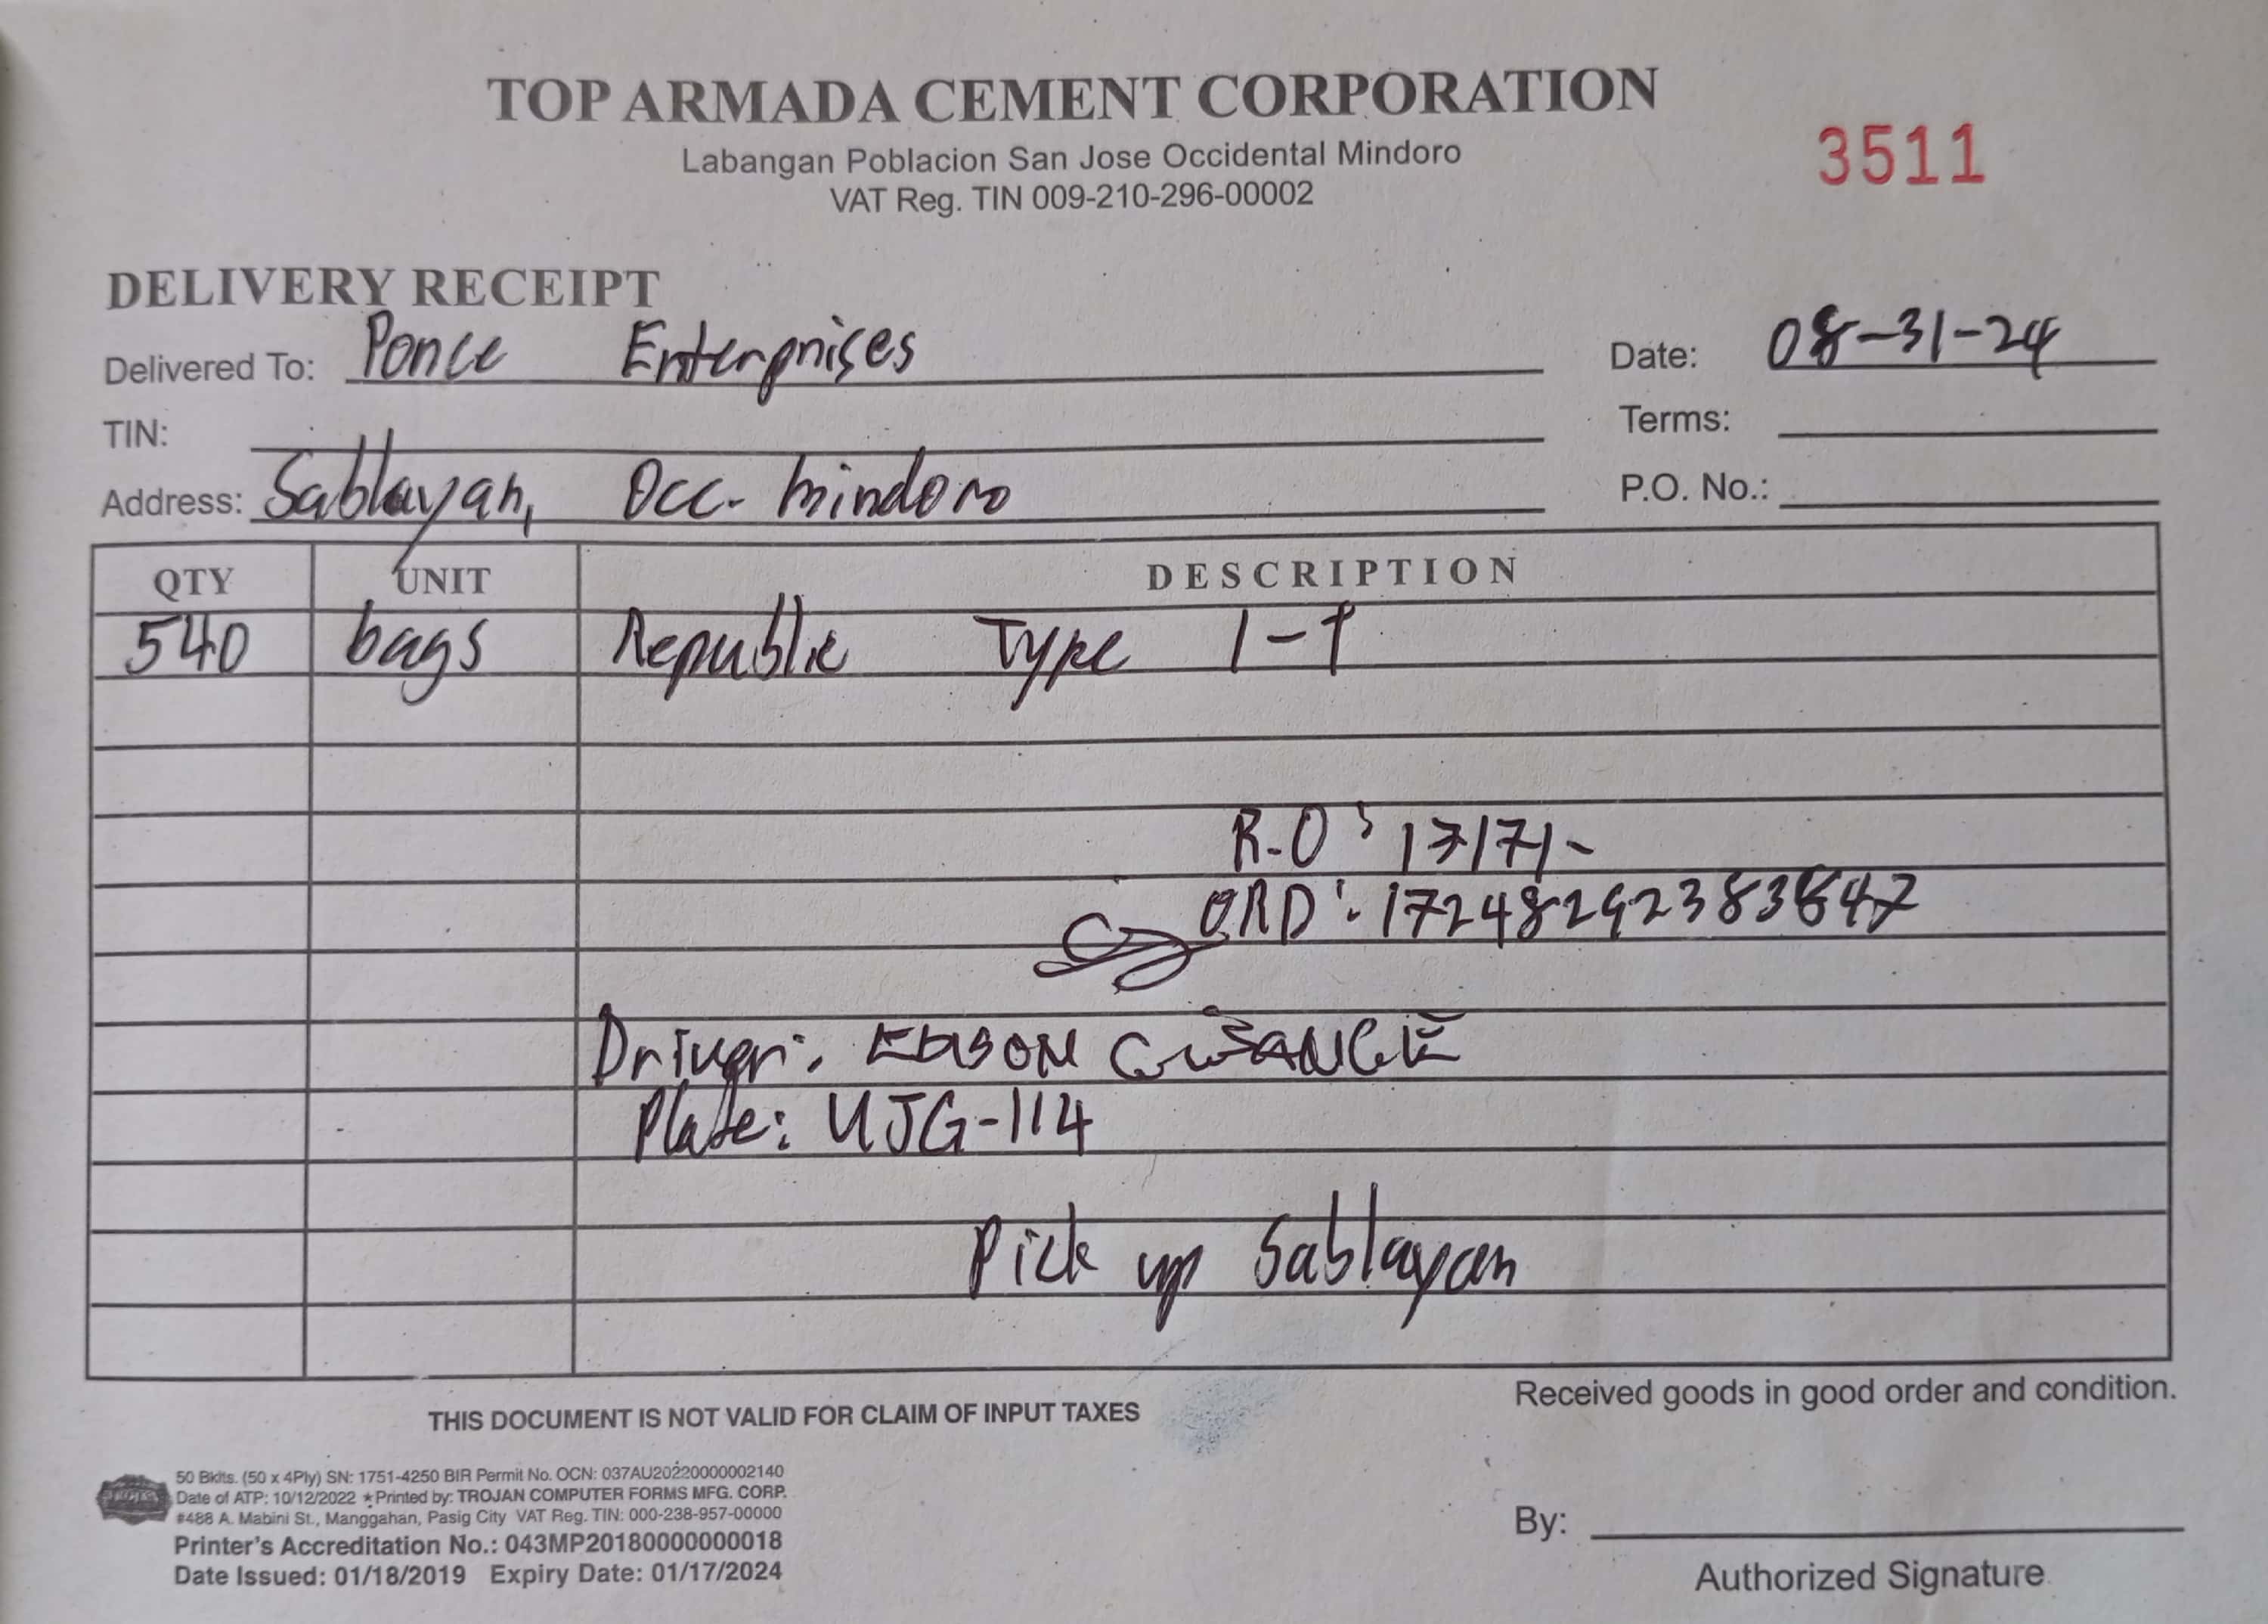 TOP ARMADA CEMENT CORPORATION
Labangan Poblacion San Jose Occidental Mindoro
VAT Reg. TIN 009-210-296-00002
3511
DELIVERY RECEIPT
Delivered To: Ponce Enterprises
Date: 08-31-24
TIN:
Terms:
Address: Sablayan, Occ. Mindoro
P.O. No.:
QTY UNIT DESCRIPTION
540 bags Republic Type 1-P
R.O: 17171
ORD:
Driver: EDISON
Plate: UJG-114
Pick up Sablayan
THIS DOCUMENT IS NOT VALID FOR CLAIM OF INPUT TAXES
Received goods in good order and condition.
50 Bklts. (50 x 4Ply) SN: 1751-4250 BIR Permit No. OCN: 037AU20220000002140
Date of ATP: 10/12/2022 ★Printed by: TROJAN COMPUTER FORMS MFG. CORP.
#488 A. Mabini St., Manggahan, Pasig City VAT Reg. TIN: 000-238-957-00000
Printer's Accreditation No.: 043MP20180000000018
Date Issued: 01/18/2019 Expiry Date: 01/17/2024
By:
Authorized Signature